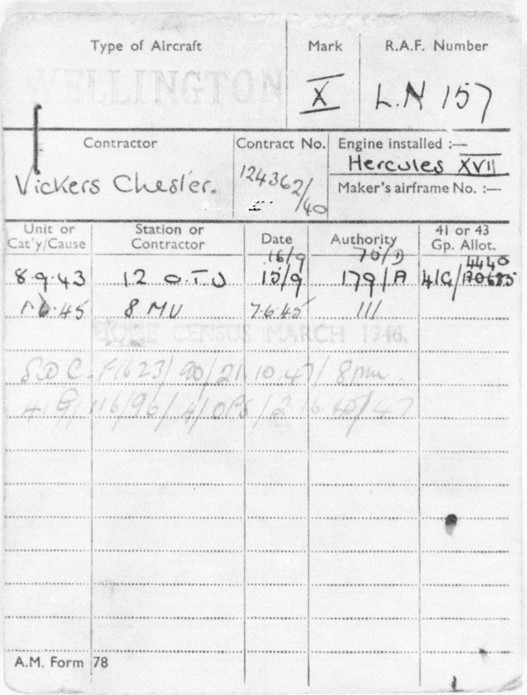 Type of Aircraft Mark R.A.F. Number
WELLINGTON X L.N 157
Contractor Contract No. Engine installed :—
Hercules XVII
Vickers Chester. 124362/40 Maker's airframe No. :—
Unit or Cat'y/Cause Station or Contractor Date Authority 41 or 43 Gp. Allot.
16/9 70/D 4440
8.9.43 12 O.T.U 15/9 179/A 41G/
6.45 8 MU 7.6.45 111
HOME CENSUS MARCH 1946.
S.O.C. F1623/90/21.10.47/8mu.
41G/116/96/4/OPS/2 /47
A.M. Form 78